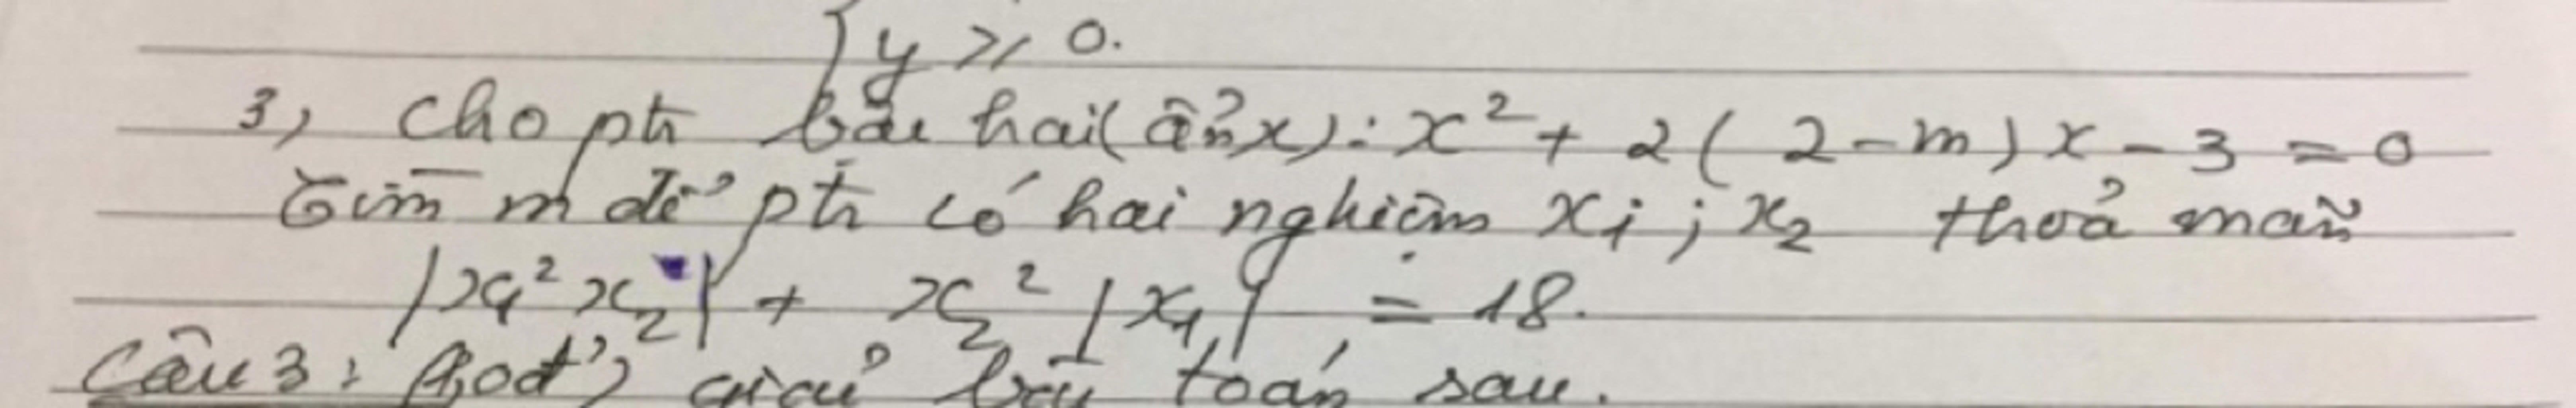 { y ≥ 0.
3, Cho pt bậc hai (ẩn x): x² + 2(2 - m)x - 3 = 0
Tìm m để pt có hai nghiệm x₁; x₂ thoả mãn
|x₁² x₂| + x₂² |x₁| = 18.
Câu 3: (2,0đ) giải bài toán sau.